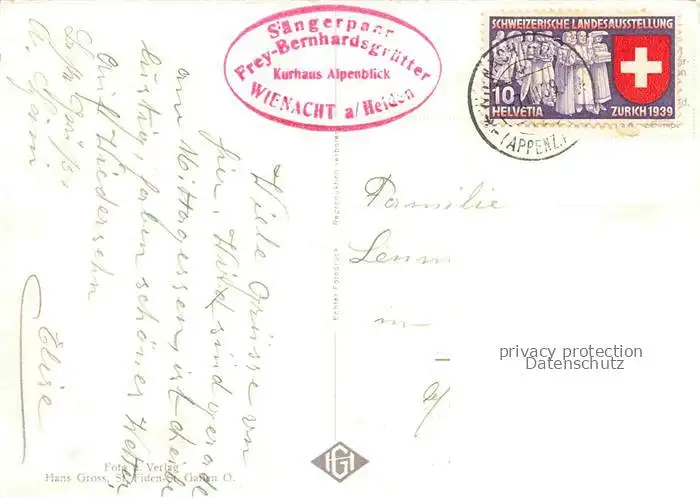 Sängerpaar
Frey-Bernhardsgrütter
Kurhaus Alpenblick
WIENACHT a/Heiden
SCHWEIZERISCHE LANDESAUSSTELLUNG
10
HELVETIA
ZÜRICH 1939
(APPENZ.)
Viele Grüsse von
hier. sind gerade
am Mittagessen, ist cheibe
lustig, haben schönes Wetter
Auf Wiedersehn
Elise
Familie
in
Echter Fotodruck
Reproduktion verboten
privacy protection
Datenschutz
HGI
Foto u. Verlag
Hans Gross, St. Fiden-St. Gallen O.